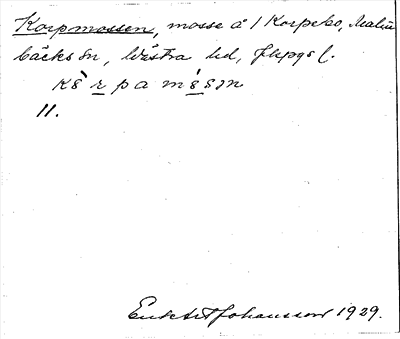 Korpmossen, mosse å 1 Korpebo, Malm
bäcks sn, Västra hd, Jkpgs l.
kòrpamósən
11.
Johansson 1929.